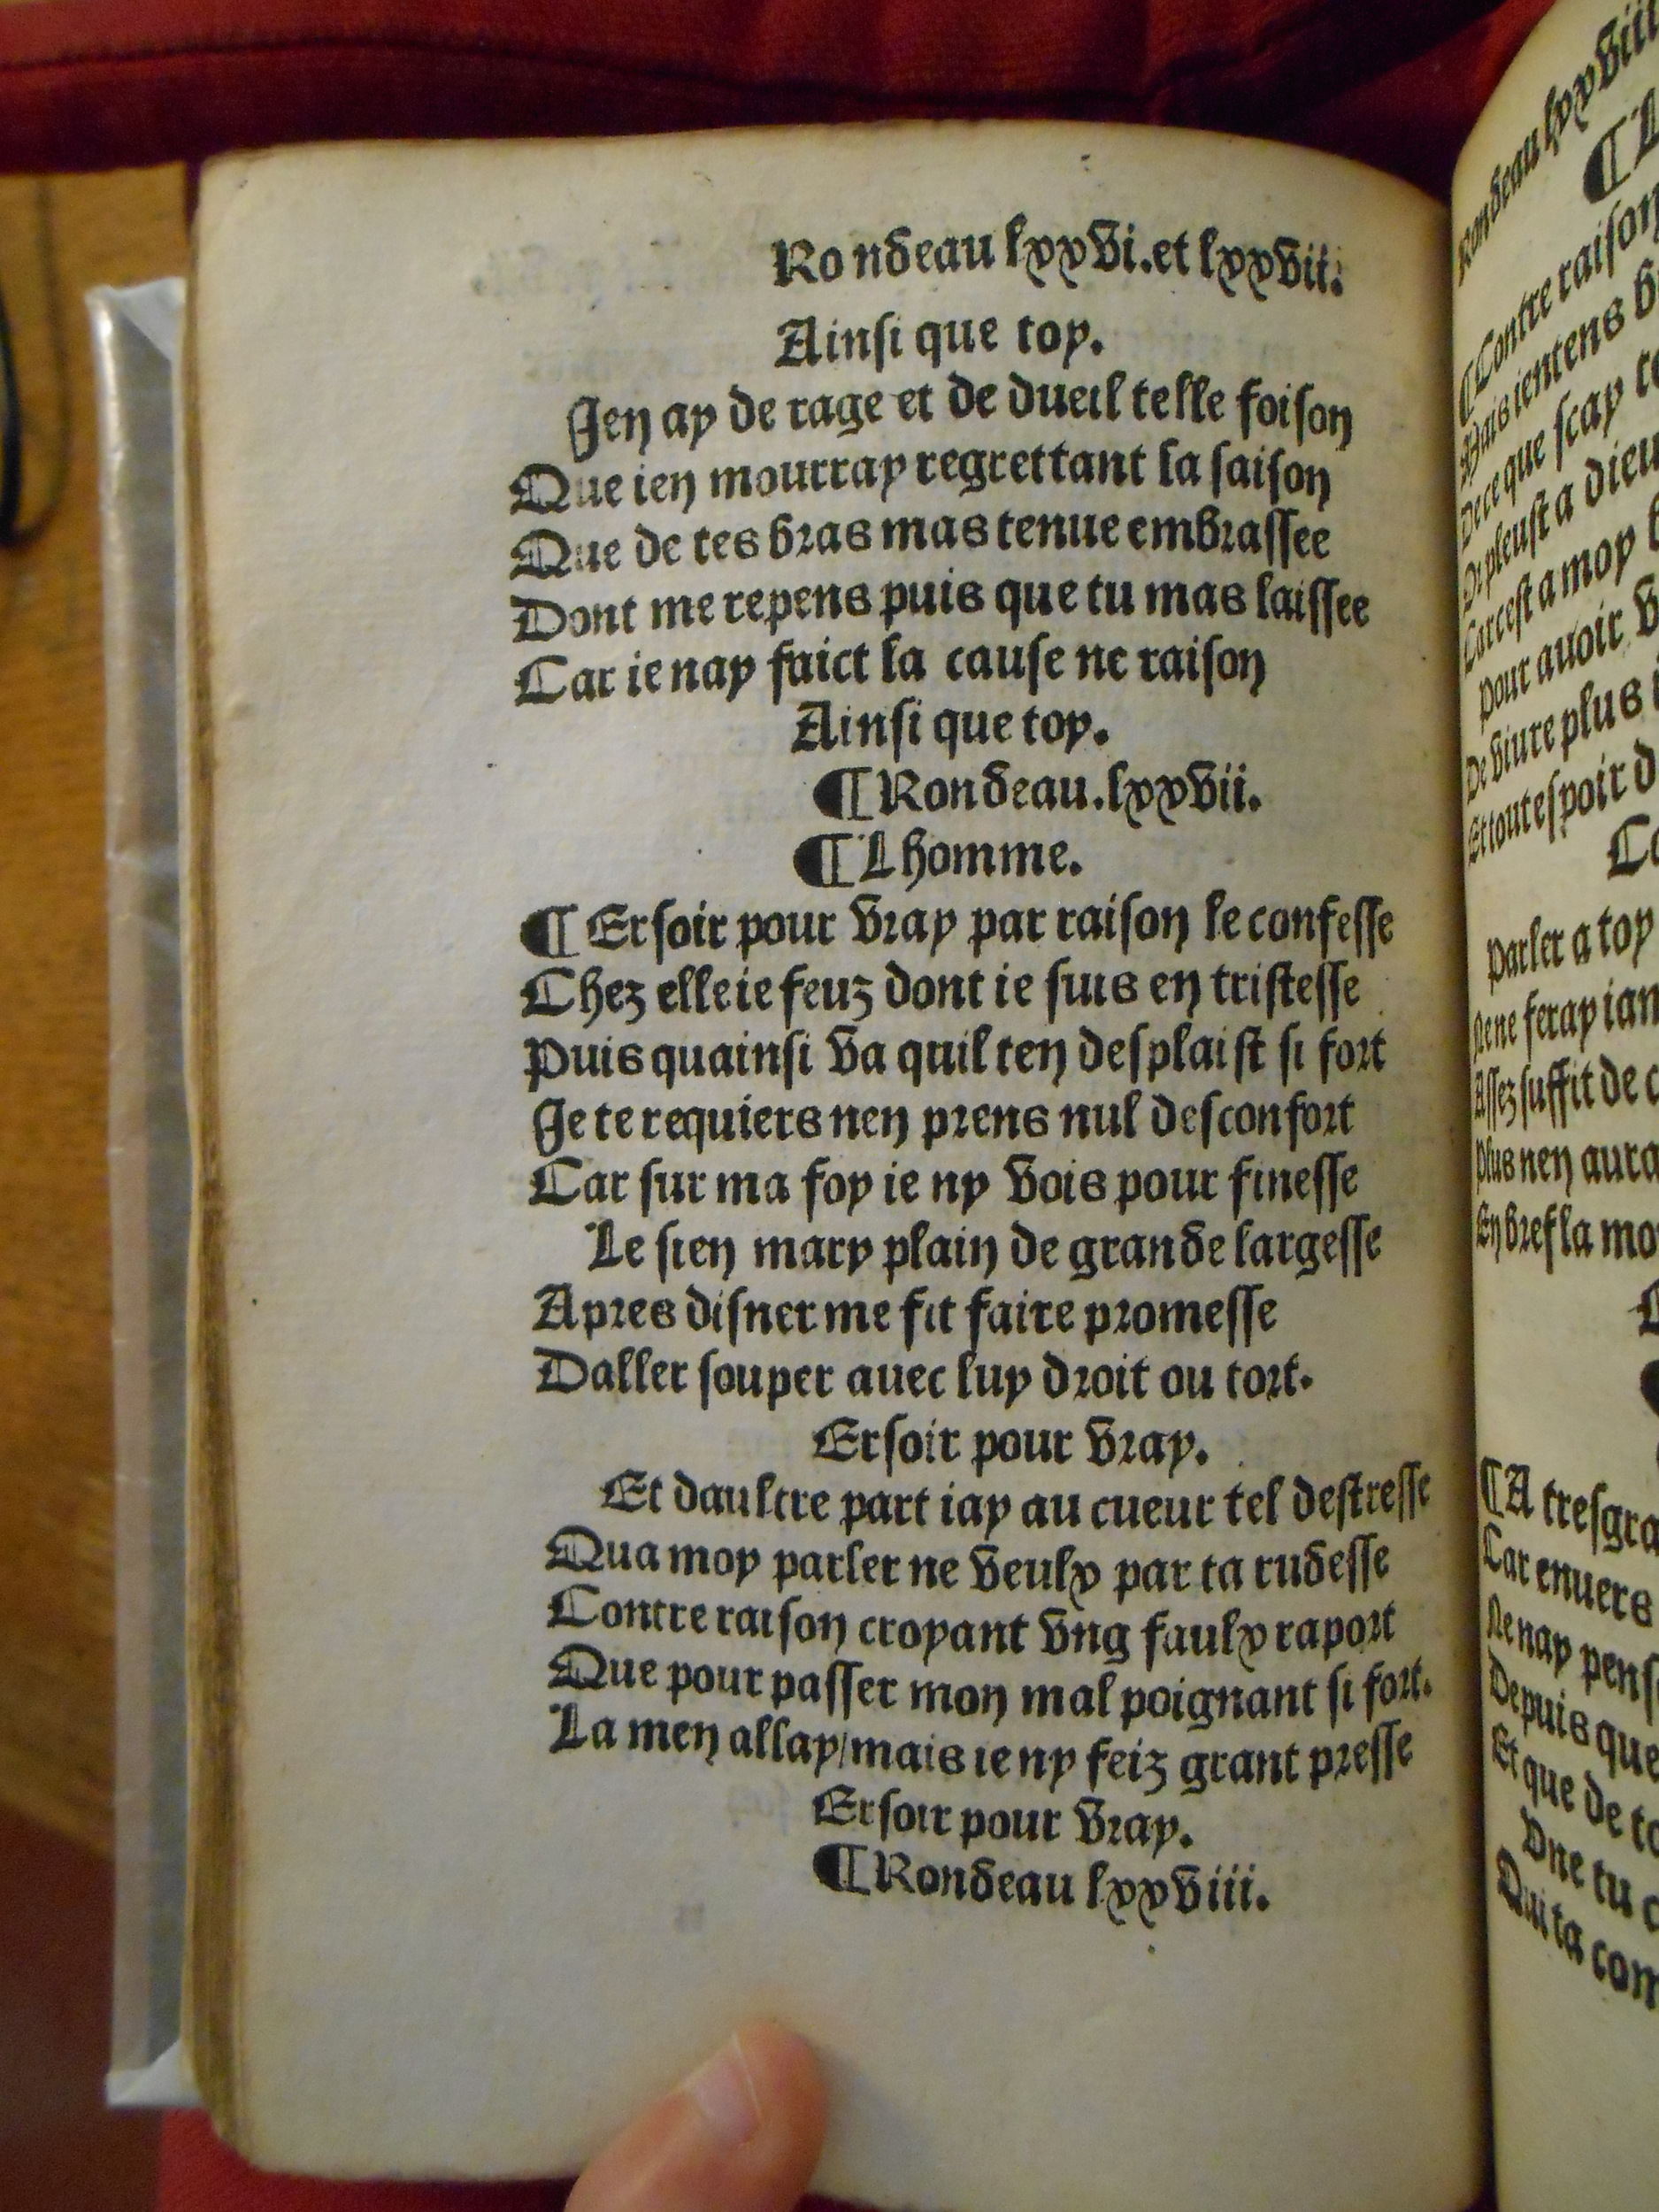 Rondeau lxxvi. et lxxvii.
Ainsi que toy.
Jen ay de rage et de dueil telle foison
Que ien mourray regrettant la saison
Que de tes bras mas tenue embrassee
Dont me repens puis que tu mas laissee
Car ie nay faict la cause ne raison
Ainsi que toy.
¶ Rondeau. lxxvii.
¶ Lhomme.
¶ Ersoir pour vray par raison le confesse
Chez elle ie feuz dont ie suis en tristesse
Puis quainsi va quil ten desplaist si fort
Je te requiers nen prens nul desconfort
Car sur ma foy ie ny vois pour finesse
Le sien mary plain de grande largesse
Apres disner me fit faire promesse
Daller souper auec luy droit ou tort.
Ersoir pour vray.
Et daultre part iay au cueur tel destresse
Qua moy parler ne veulx par ta rudesse
Contre raison croyant vng faulx raport
Que pour passer mon mal poignant si fort.
La men allay/mais ie ny feiz grant presse
Ersoir pour vray.
¶ Rondeau lxxviii.
Rondeau lxxviii
¶ L
¶ Contre raison
Mais ientens
De ce que scay
Car cest a moy
pour auoir
De viure plus
Et tout espoir d
Co
parler a toy
Assez suffit de
plus nen aura
En bref la mo
¶ A tresgra
Car enuers
Ne nay pens
Depuis que
Et que de to
Une tu
Qui ta com